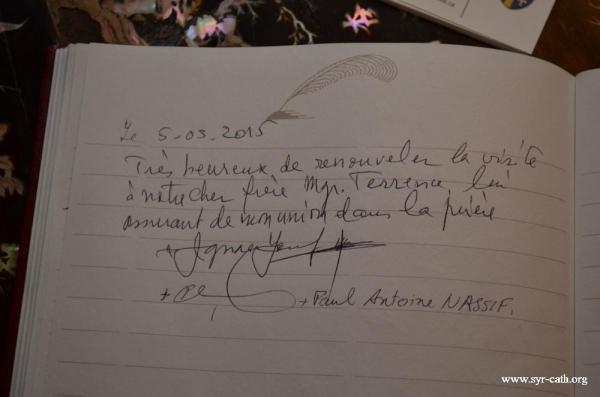 Le 5-03-2015
Très heureux de renouveler la visite
à notre cher frère Mgr. Terrence, lui
assurant de mon union dans la prière
+ Paul Antoine NASSIF.
www.syr-cath.org